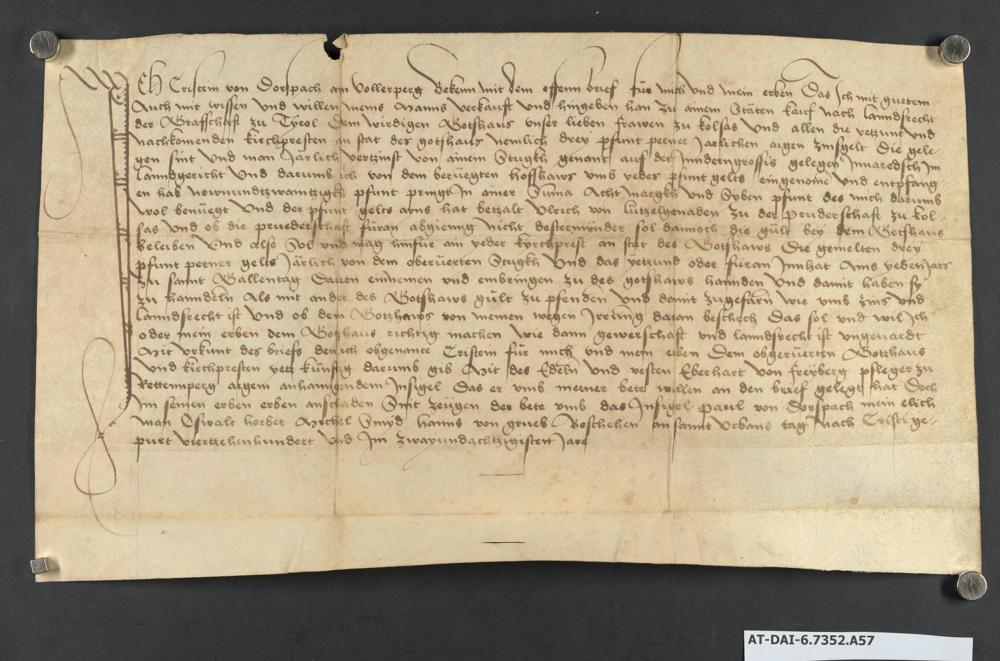 Ich Cristein von Dorspach am Vollerperg Bekenn mit dem offenn brief für mich vnd mein erben Das Ich mit guetem
Auch mit wissen vnd willen meins Manns verkauft vnd hingeben han zu ainem Stäten kauf nach lanndsrecht
der Graffschaft zu Tyrol Dem wirdigen Gotshaus vnser lieben frawen zu kolsas vnd allen die yetzunt vnd
nachkomenden kirchpresten an stat des gotshaus nemlich drey pfunt perner Järlichen aigen zinsgelt Die gele-
gen sint vnd man Järlich vertzinst von ainem Stugkh genant auf der gelegen Im
lanndgericht Vnd darumb ich von dem beruegten hoffhaws vmb yedes pfunt gelts eingenome vnd entpfang-
en hab newnundtzwaintzigkh pfunt pringt In ainer Suma Acht margkh vnd Syben pfunt des mich darumb
wol benuegt Vnd der pfunt gelts ains hat betzalt Vlrich von lutzelgnaden zu der pruderschaft zu kol-
sas vnd ob die pruederschaft füran abgienng nicht destermynder sol dannoch die gült bey dem Gotshaus
beleiben Vnd also Sol vnd mag hinfür ain yeder kyrchprest an stat des Gotshaws Die gemelten drey
pfunt perner gelts Järlich von dem oberüerten Stugkh vnd das yetzund oder füran Innhat Ains yeden Jars
zu sannt Gallentag Dauon einnemen vnd einbringen zu des gotshaws hannden vnd damit haben sy
zu hanndeln Als mit ander des Gotshaws gült zu pfenden vnd damit zugefarn wie vmb zins vnd
lanndsrecht ist Vnd ob dem Gotzhaws von meinen wegen Irrung daran beschech Das sol vnd wil Ich
oder mein erben dem Gotzhaus richtig machen wie dann gewerschaft vnd lanndsrecht ist vngeuardt
Mit vrkunt des briefs den ich obgenante Cristein für mich vnd mein erben Dem obgerüerten Gotzhaus
vnd kirchpresten yetz künftig darumb gib Mit des Edeln vnd vesten Eberhart von freyberg pfleger zu
Rottemnperg aigem anhangendem Insigel Das er vmb meiner bete willen an den brief gelegt hat Doch
Im seinen erben erben anschaden Sint zeugen der bete vmb das Insigel Paul von Dorspach mein elich
man Oswalt horber Michel Smyd hanns von grueb Beschehen an sannt Vrbans tag Nach Cristi ge-
purt viertzehenhundert vnd Im zwayundachtzigisten Jare
AT-DAI-6.7352.A57